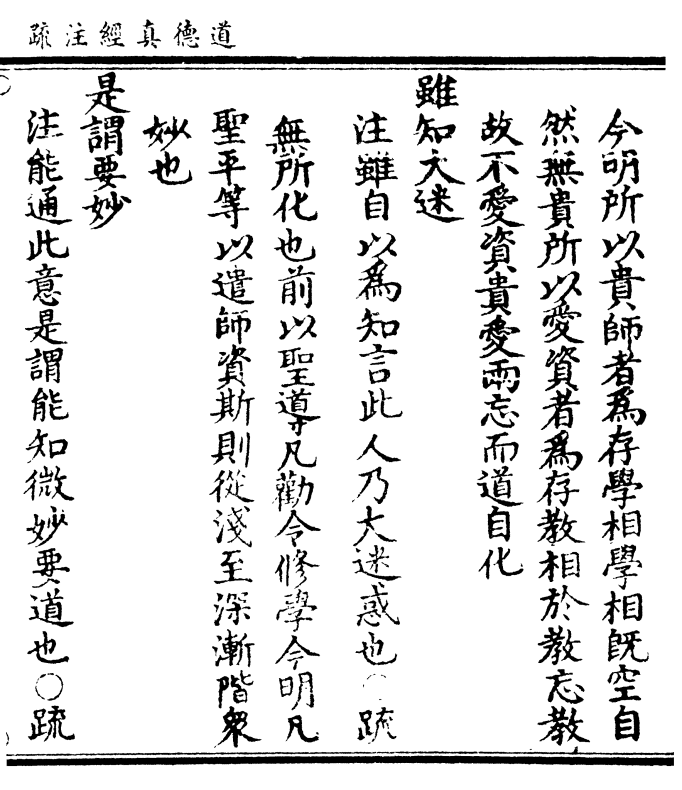 道德真經注疏
今明所以貴師者爲存學相學相旣空自
然無貴所以愛資者爲存教相於教忘教
故不愛資貴愛兩忘而道自化
雖知大迷
注雖自以爲知言此人乃大迷惑也○疏
無所化也前以聖導凡勸令修學今明凡
聖平等以遣師資斯則從淺至深漸階衆
妙也
是謂要妙
注能通此意是謂能知微妙要道也○疏